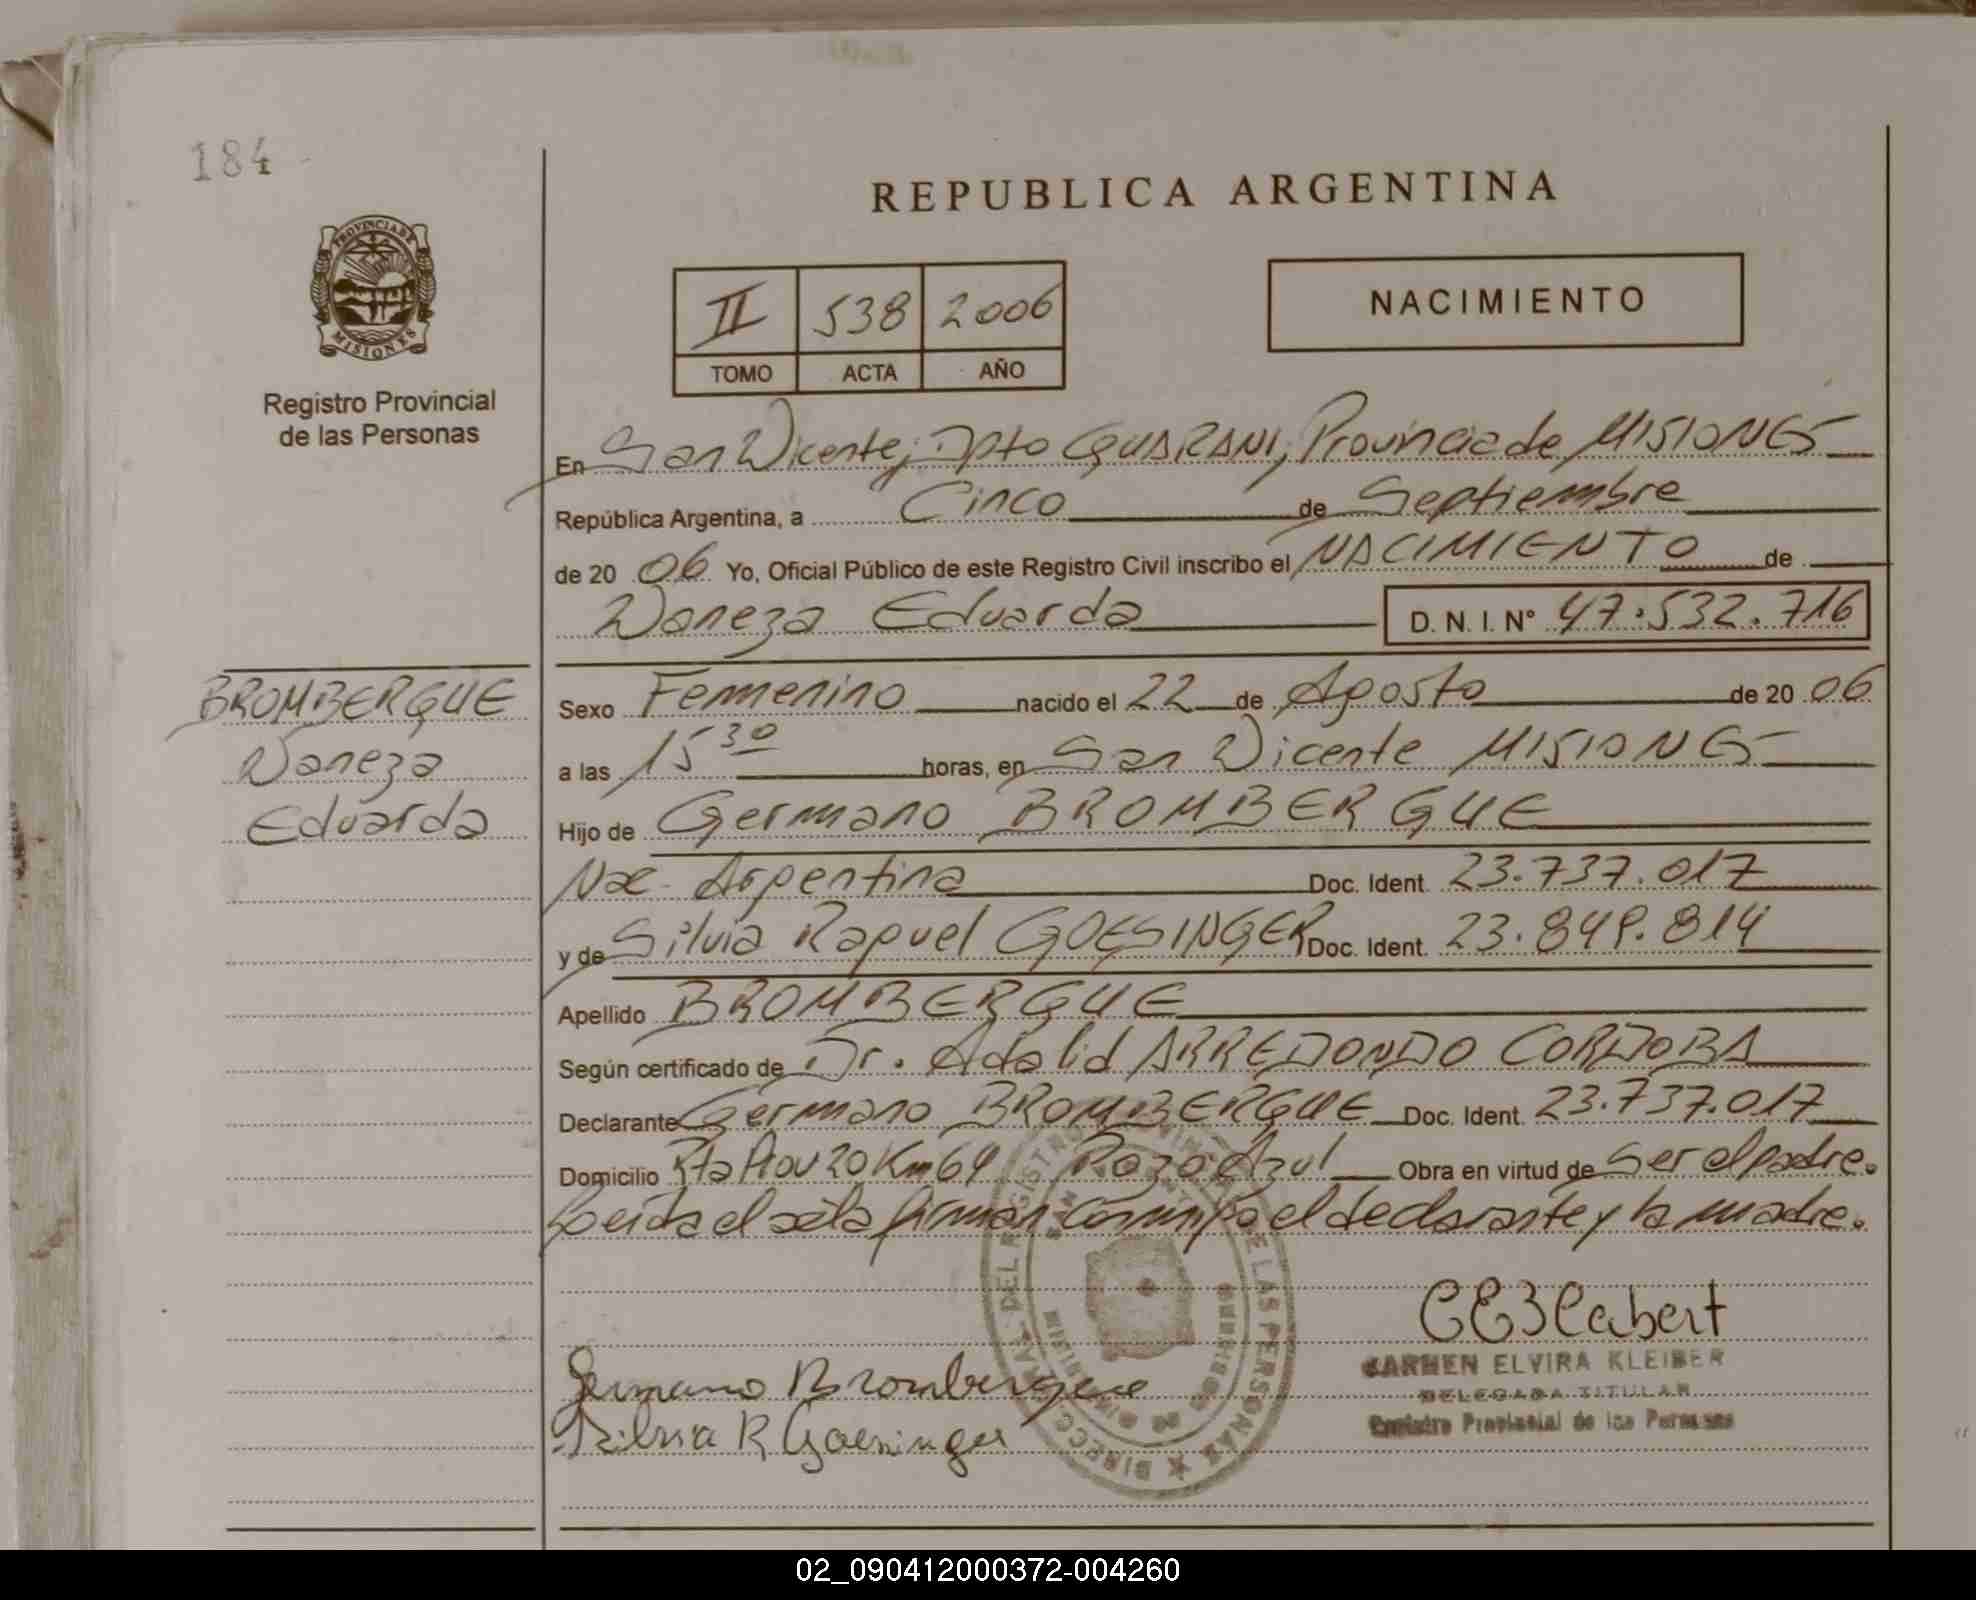 184
REPUBLICA ARGENTINA
PROVINCIA DE
MISIONES
Registro Provincial
de las Personas
II 538 2006
TOMO ACTA AÑO
NACIMIENTO
En San Vicente; Dpto GUARANI, Provincia de MISIONES
República Argentina, a Cinco de Septiembre
de 2006 Yo, Oficial Público de este Registro Civil inscribo el NACIMIENTO de
Vaneza Eduarda D. N. I. N° 47.532.716
BROMBERGUE
Vaneza
Eduarda
Sexo Femenino nacido el 22 de Agosto de 2006
a las 15 30 horas, en San Vicente MISIONES
Hijo de Germano BROMBERGUE
Nac. Argentina Doc. Ident. 23.737.017
y de Silvia Raquel GOESINGER Doc. Ident. 23.849.814
Apellido BROMBERGUE
Según certificado de Dr. Adalid ARREDONDO CORDOBA
Declarante Germano BROMBERGUE Doc. Ident. 23.737.017
Domicilio Rta Prov 20 Km 64 Pozo Azul Obra en virtud de Ser el padre.
Leida el acta firman conmigo el declarante y la madre.
Germano Brombergue
Silvia R Goesinger
CARMEN ELVIRA KLEIBER
DELEGADA TITULAR
Registro Provincial de las Personas
02_090412000372-004260